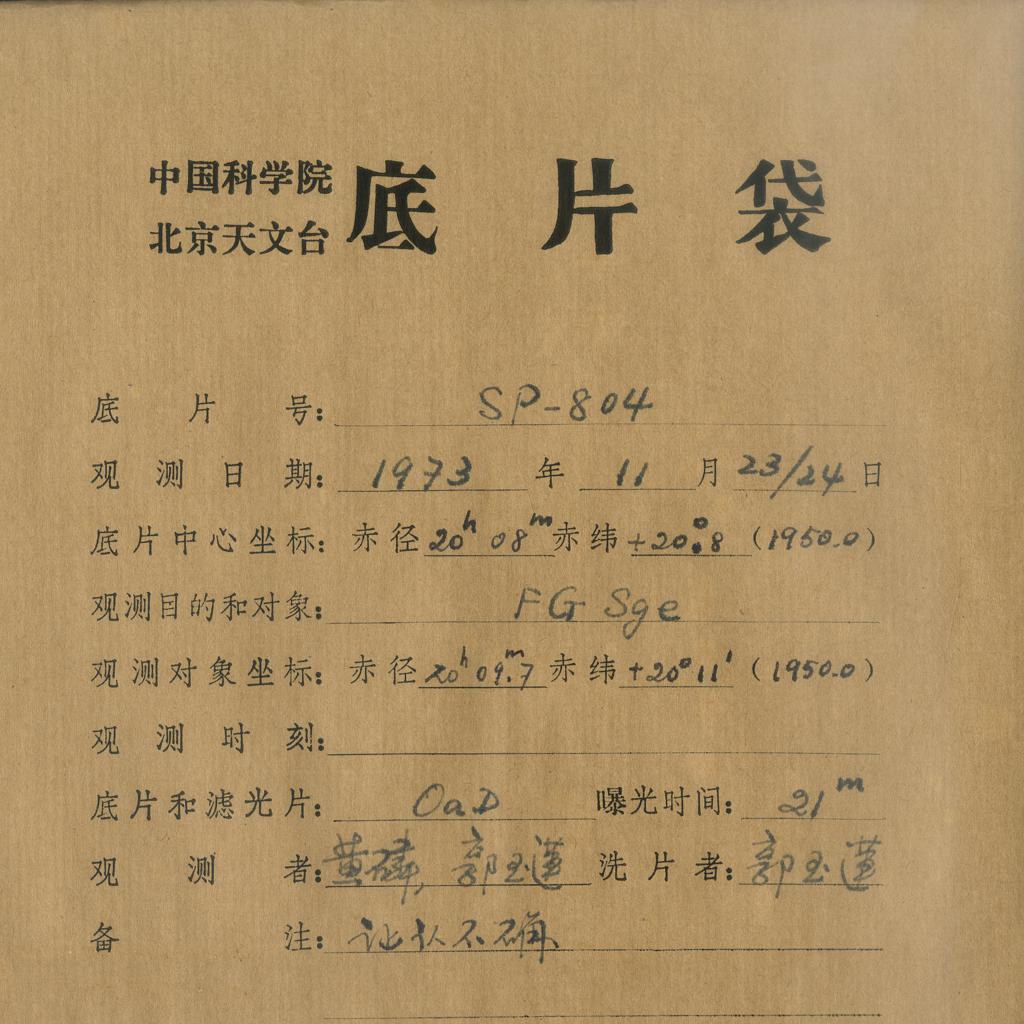 中国科学院
北京天文台
底片袋
底片号: SP-804
观测日期: 1973 年 11 月 23/24 日
底片中心坐标: 赤径 20ʰ 08ᵐ 赤纬 +20°.8 (1950.0)
观测目的和对象: FG Sge
观测对象坐标: 赤径 20ʰ 09ᵐ.7 赤纬 +20°11′ (1950.0)
观测时刻:
底片和滤光片: OaD 曝光时间: 21ᵐ
观测者: 黄磷, 郭玉莲 洗片者: 郭玉莲
备注: 认不确